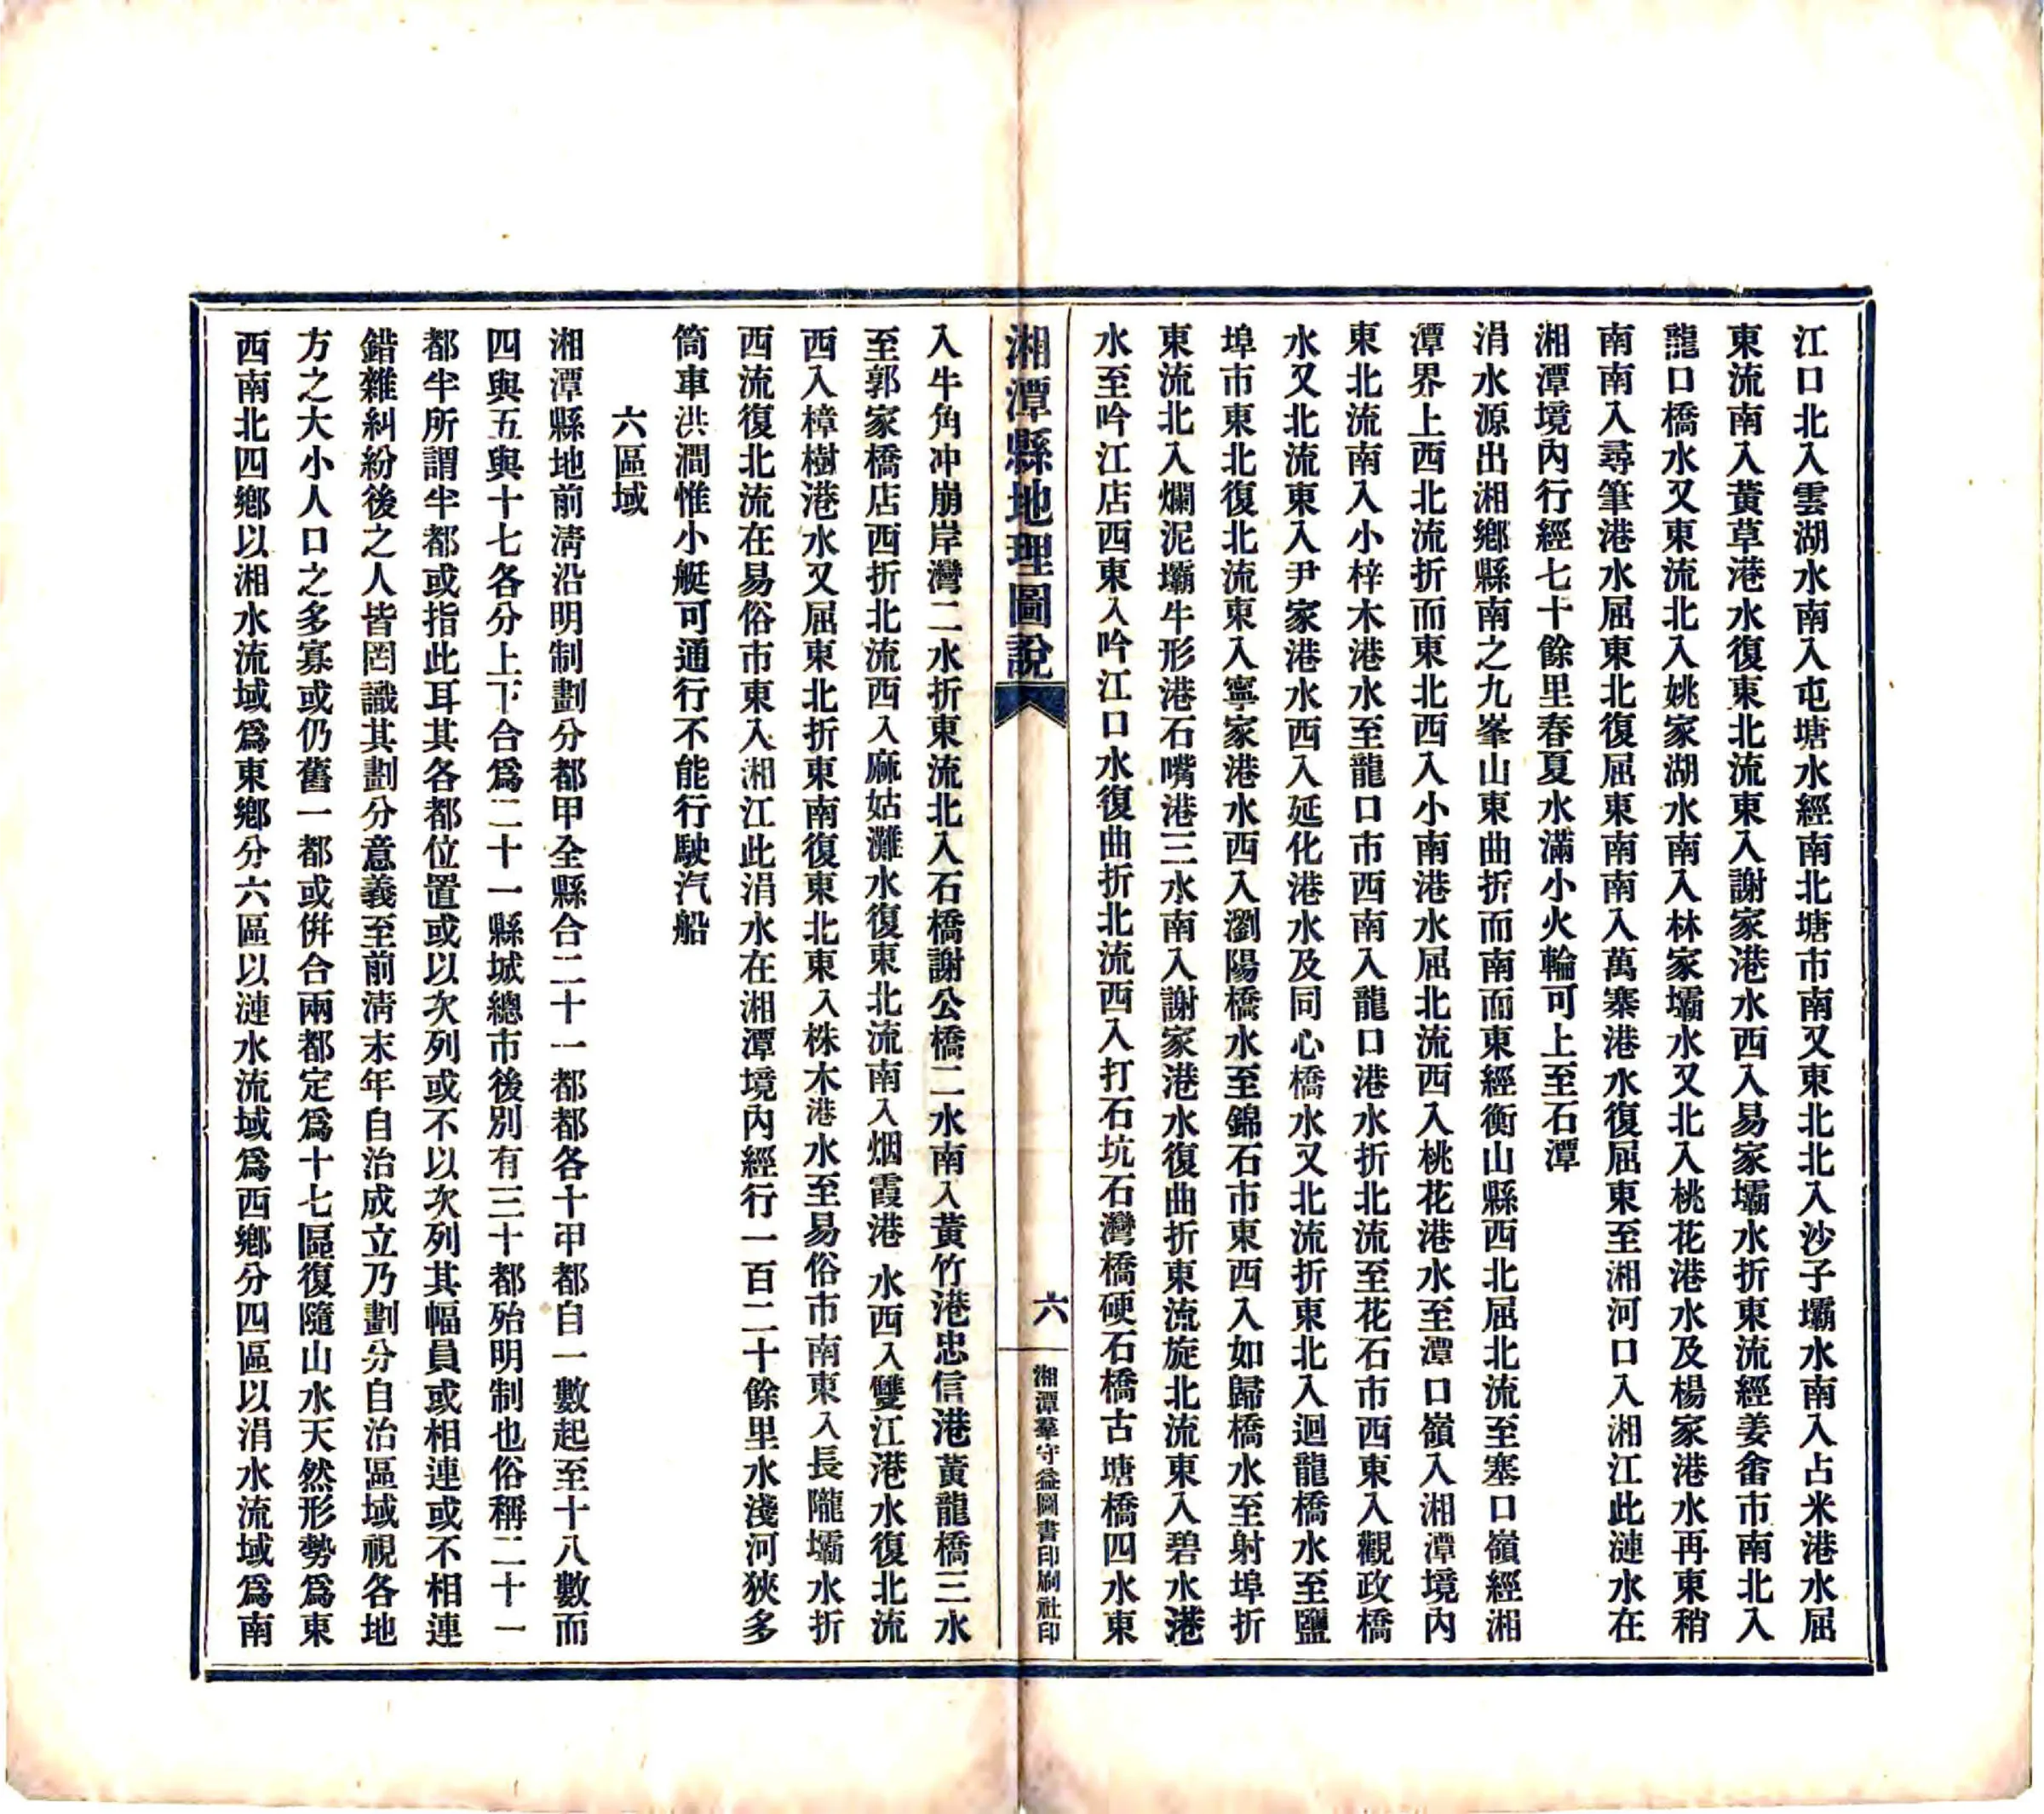 江口北入雲湖水南入屯塘水經南北塘市南又東北北入沙子壩水南入占米港水屈
東流南入黃草港水復東北流東入謝家港水西入易家壩水折東流經姜畬市南北入
龍口橋水又東流北入姚家湖水南入林家壩水又北入桃花港水及楊家港水再東稍
南南入尋筆港水屈東北復屈東南南入萬寨港水復屈東至湘河口入湘江此漣水在
湘潭境內行經七十餘里春夏水滿小火輪可上至石潭
涓水源出湘鄉縣南之九峯山東曲折而南而東經衡山縣西北屈北流至塞口嶺經湘
潭界上西北流折而東北西入小南港水屈北流西入桃花港水至潭口嶺入湘潭境內
東北流南入小梓木港水至龍口市西南入龍口港水折北流至花石市西東入觀政橋
水又北流東入尹家港水西入延化港水及同心橋水又北流折東北入迴龍橋水至鹽
埠市東北復北流東入寧家港水西入瀏陽橋水至錦石市東西入如歸橋水至射埠折
東流北入爛泥壩牛形港石嘴港三水南入謝家港水復曲折東流旋北流東入碧水港
水至吟江店西東入吟江口水復曲折北流西入打石坑石灣橋硬石橋古塘橋四水東
湘潭縣地理圖說
六
湘潭羣守益圖書印刷社印
入牛角冲崩岸灣二水折東流北入石橋謝公橋二水南入黃竹港忠信港黃龍橋三水
至郭家橋店西折北流西入麻姑灘水復東北流南入烟霞港水西入雙江港水復北流
西入樟樹港水又屈東北折東南復東北東入株木港水至易俗市南東入長隴壩水折
西流復北流在易俗市東入湘江此涓水在湘潭境內經行一百二十餘里水淺河狹多
筒車洪澗惟小艇可通行不能行駛汽船
六區域
湘潭縣地前淸沿明制劃分都甲全縣合二十一都都各十甲都自一數起至十八數而
四與五與十七各分上下合爲二十一縣城總市後別有三十都殆明制也俗稱二十一
都半所謂半都或指此耳其各都位置或以次列或不以次列其幅員或相連或不相連
錯雜糾紛後之人皆罔識其劃分意義至前淸末年自治成立乃劃分自治區域視各地
方之大小人口之多寡或仍舊一都或倂合兩都定爲十七區復隨山水天然形勢爲東
西南北四鄉以湘水流域爲東鄉分六區以漣水流域爲西鄉分四區以涓水流域爲南